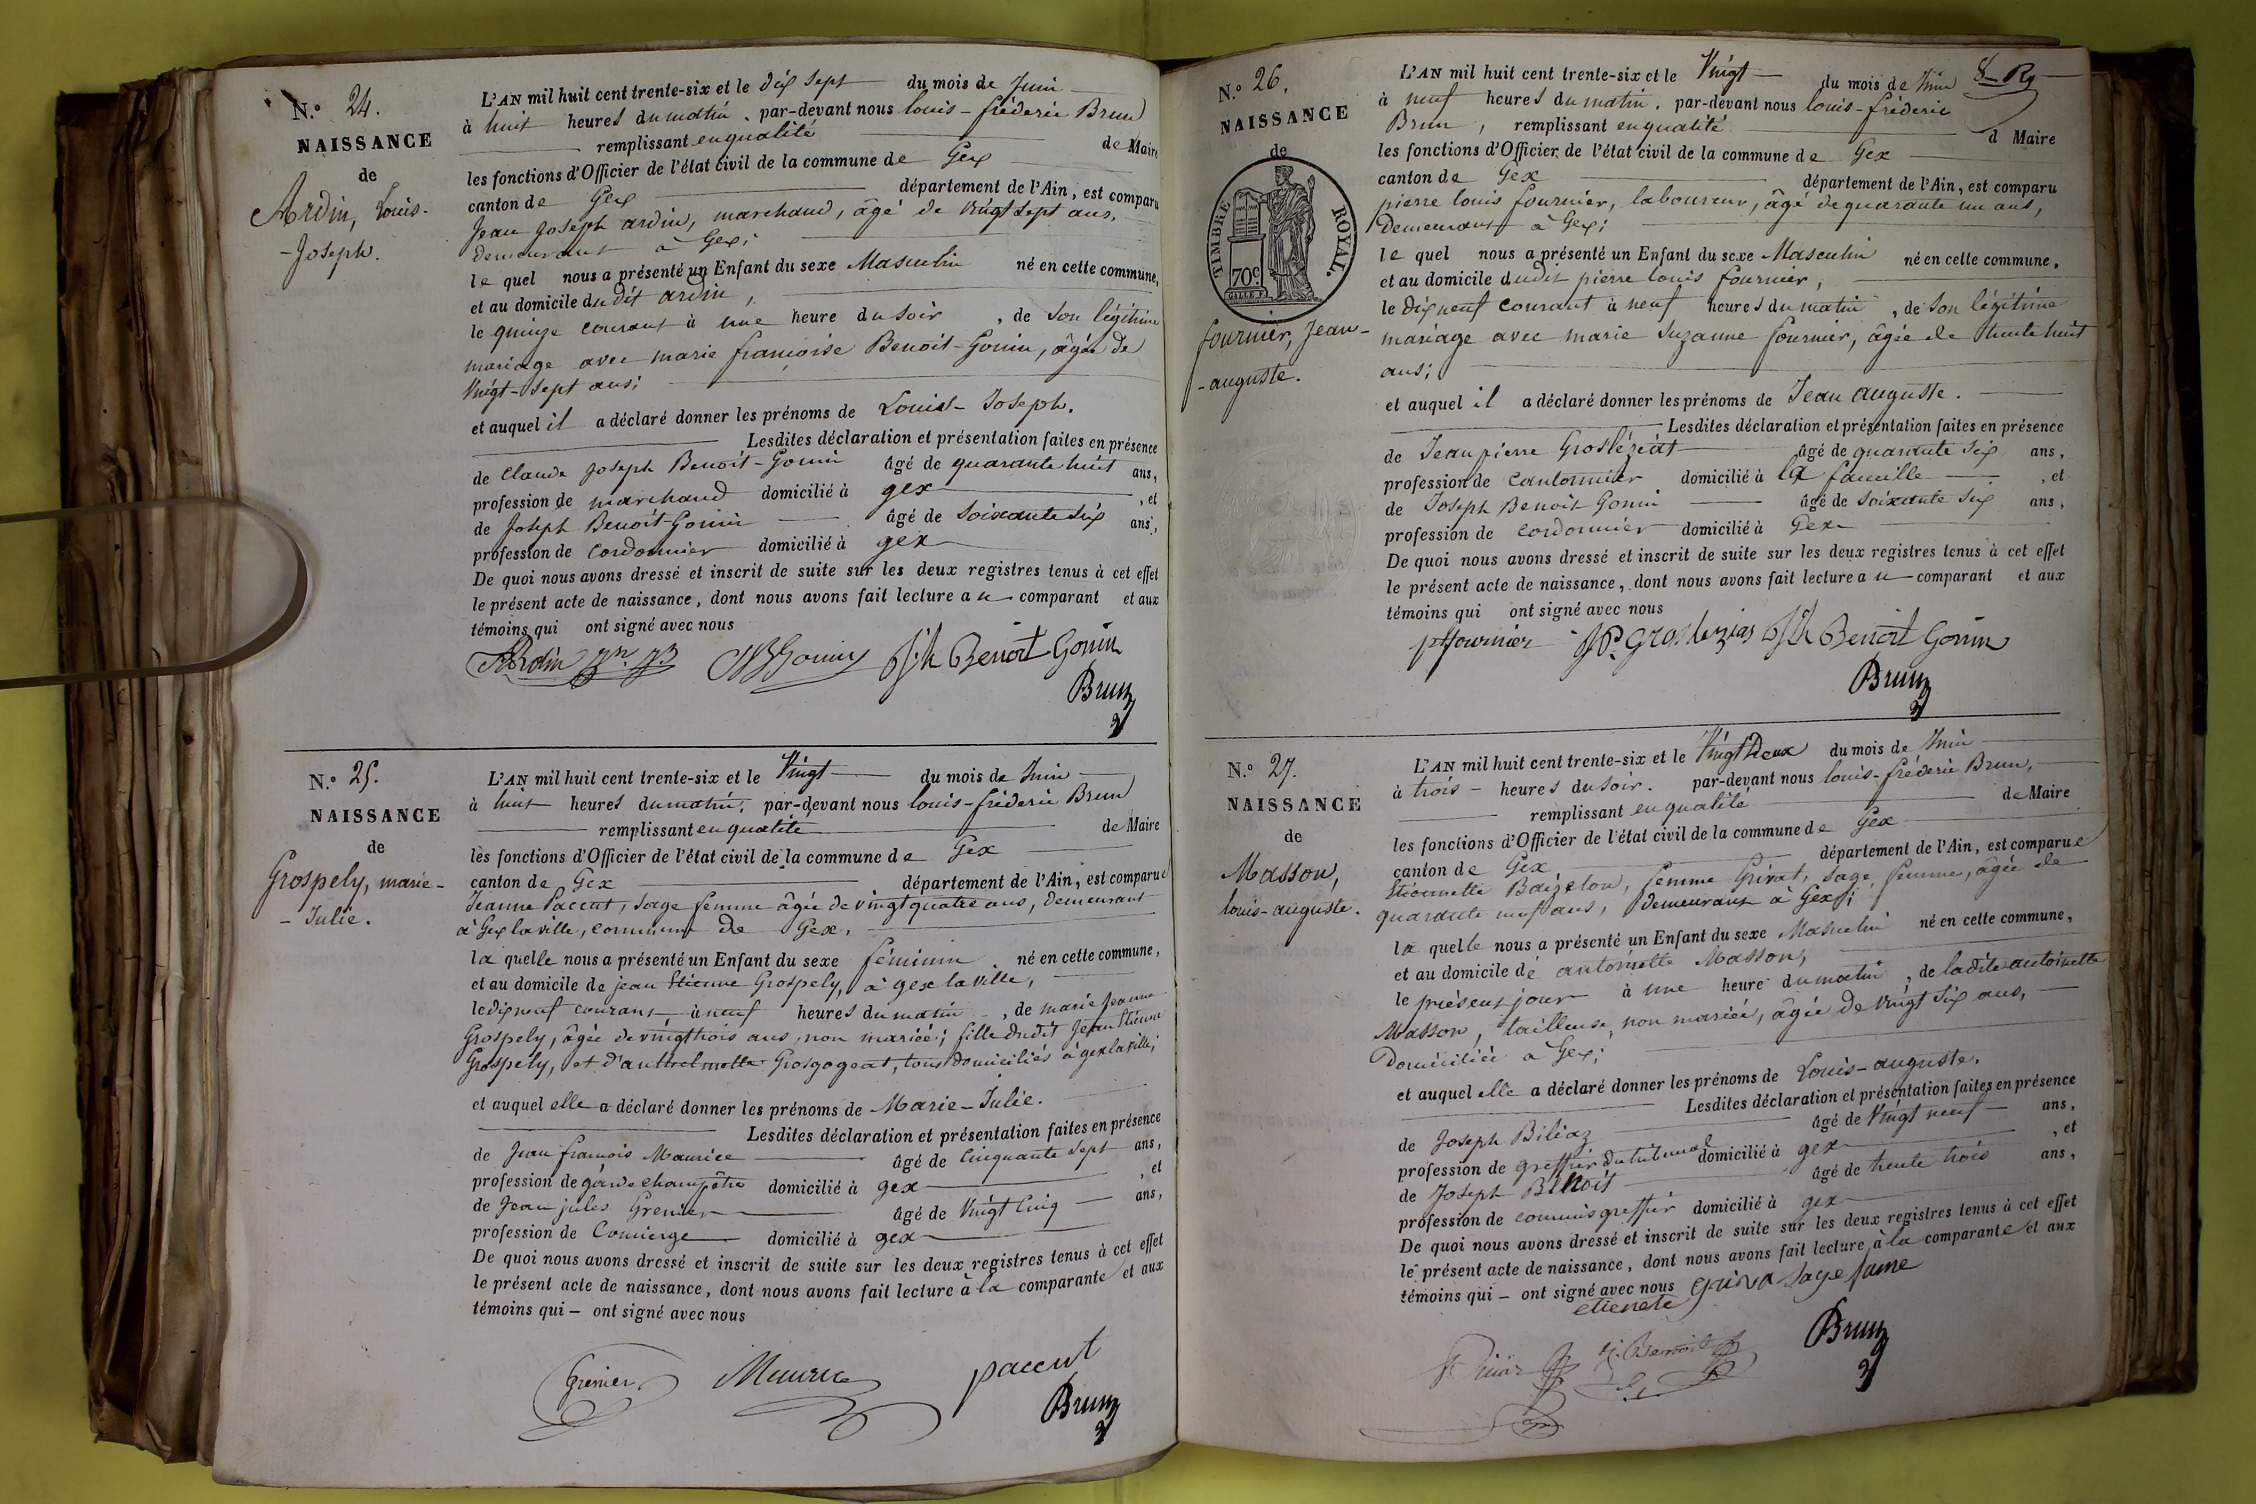 N.o 24.
NAISSANCE
de
Ardin, Louis-
-Joseph.
L'AN mil huit cent trente-six et le dix sept du mois de Juin
à huit heures du matin, par-devant nous louis-fréderic Brun
remplissant en qualité de Maire
les fonctions d'Officier de l'état civil de la commune de Gex
canton de Gex département de l'Ain, est comparu
Jean Joseph ardin, marchand, âgé de vingt sept ans,
demeurant à Gex;
le quel nous a présenté un Enfant du sexe Masculin né en cette commune,
et au domicile du dit ardin,
le quinze courant à une heure du soir, de son légitime
mariage avec marie françoise Benoit-Gonin, âgée de
vingt-sept ans;
et auquel il a déclaré donner les prénoms de Louis-Joseph.
Lesdites déclaration et présentation faites en présence
de Claude Joseph Benoit-Gonin âgé de quarante huit ans,
profession de marchand domicilié à gex, et
de Joseph Benoit-Gonin âgé de soixante six ans,
profession de cordonnier domicilié à gex
De quoi nous avons dressé et inscrit de suite sur les deux registres tenus à cet effet
le présent acte de naissance, dont nous avons fait lecture au comparant et aux
témoins qui ont signé avec nous
Ardin Gonin Jh Benoit Gonin
Brun
N.o 25.
NAISSANCE
de
Grospely, marie-
-Julie.
L'AN mil huit cent trente-six et le Vingt du mois de Juin
à huit heures du matin, par-devant nous louis-fréderic Brun
remplissant en qualité de Maire
les fonctions d'Officier de l'état civil de la commune de Gex
canton de Gex département de l'Ain, est comparue
Jeanne Paccut, sage femme âgée de vingt quatre ans, demeurant
à Gex la ville, commune de Gex,
la quelle nous a présenté un Enfant du sexe féminin né en cette commune,
et au domicile de jean Etienne Grospely, à gex la ville,
le dix neuf courant à neuf heures du matin, de marie jeanne
Grospely, âgée de vingt trois ans, non mariée; fille dudit Jean Etienne
Grospely, et d' Grosgogeat, tous domiciliés à gex la ville;
et auquel elle a déclaré donner les prénoms de Marie-Julie.
Lesdites déclaration et présentation faites en présence
de Jean françois Maurice âgé de Cinquante sept ans,
profession de garde champêtre domicilié à gex, et
de Jean jules Grenier âgé de Vingt Cinq ans,
profession de Concierge domicilié à gex
De quoi nous avons dressé et inscrit de suite sur les deux registres tenus à cet effet
le présent acte de naissance, dont nous avons fait lecture à la comparante et aux
témoins qui – ont signé avec nous
Grenier Maurice paccut
Brun
8 Ry
N.o 26.
NAISSANCE
de
TIMBRE ROYAL.
70c
fournier, Jean-
-auguste.
L'AN mil huit cent trente-six et le Vingt du mois de Juin
à neuf heures du matin, par-devant nous louis-fréderic
Brun, remplissant en qualité d Maire
les fonctions d'Officier de l'état civil de la commune de Gex
canton de Gex département de l'Ain, est comparu
pierre louis fournier, laboureur, âgé de quarante un ans,
demeurant à Gex;
le quel nous a présenté un Enfant du sexe Masculin né en cette commune,
et au domicile dudit pierre louis fournier,
le dix neuf courant à neuf heures du matin, de son légitime
mariage avec marie Suzanne fournier, âgée de trente huit
ans;
et auquel il a déclaré donner les prénoms de Jean auguste.
Lesdites déclaration et présentation faites en présence
de Jean pierre Groslézéat âgé de quarante six ans,
profession de cantonnier domicilié à la faucille, et
de Joseph Benoit Gonin âgé de soixante six ans,
profession de cordonnier domicilié à Gex
De quoi nous avons dressé et inscrit de suite sur les deux registres tenus à cet effet
le présent acte de naissance, dont nous avons fait lecture au comparant et aux
témoins qui ont signé avec nous
plfournier JP. Groslezias Jh Benoit Gonin
Brun
N.o 27.
NAISSANCE
de
Masson,
louis-auguste.
L'AN mil huit cent trente-six et le Vingt Deux du mois de Juin
à trois heures du soir. par-devant nous louis-fréderic Brun,
remplissant en qualité de Maire
les fonctions d'Officier de l'état civil de la commune de Gex
canton de Gex département de l'Ain, est comparue
Etiennette Baizelon, femme Grivat, sage femme, âgée de
quarante neuf ans, demeurant à Gex;
la quelle nous a présenté un Enfant du sexe Masculin né en cette commune,
et au domicile de antoinette Masson,
le présent jour à une heure du matin, de ladite antoinette
Masson, tailleuse, non mariée, âgée de vingt six ans,
Domiciliée à Gex;
et auquel elle a déclaré donner les prénoms de Louis-auguste.
Lesdites déclaration et présentation faites en présence
de Joseph Biliaz âgé de Vingt neuf ans,
profession de greffier du tribunal domicilié à gex, et
de Joseph Benoit âgé de trente trois ans,
profession de commis greffier domicilié à gex
De quoi nous avons dressé et inscrit de suite sur les deux registres tenus à cet effet
le présent acte de naissance, dont nous avons fait lecture à la comparante et aux
témoins qui – ont signé avec nous
etienete sage fame
j. Benoit
Brun